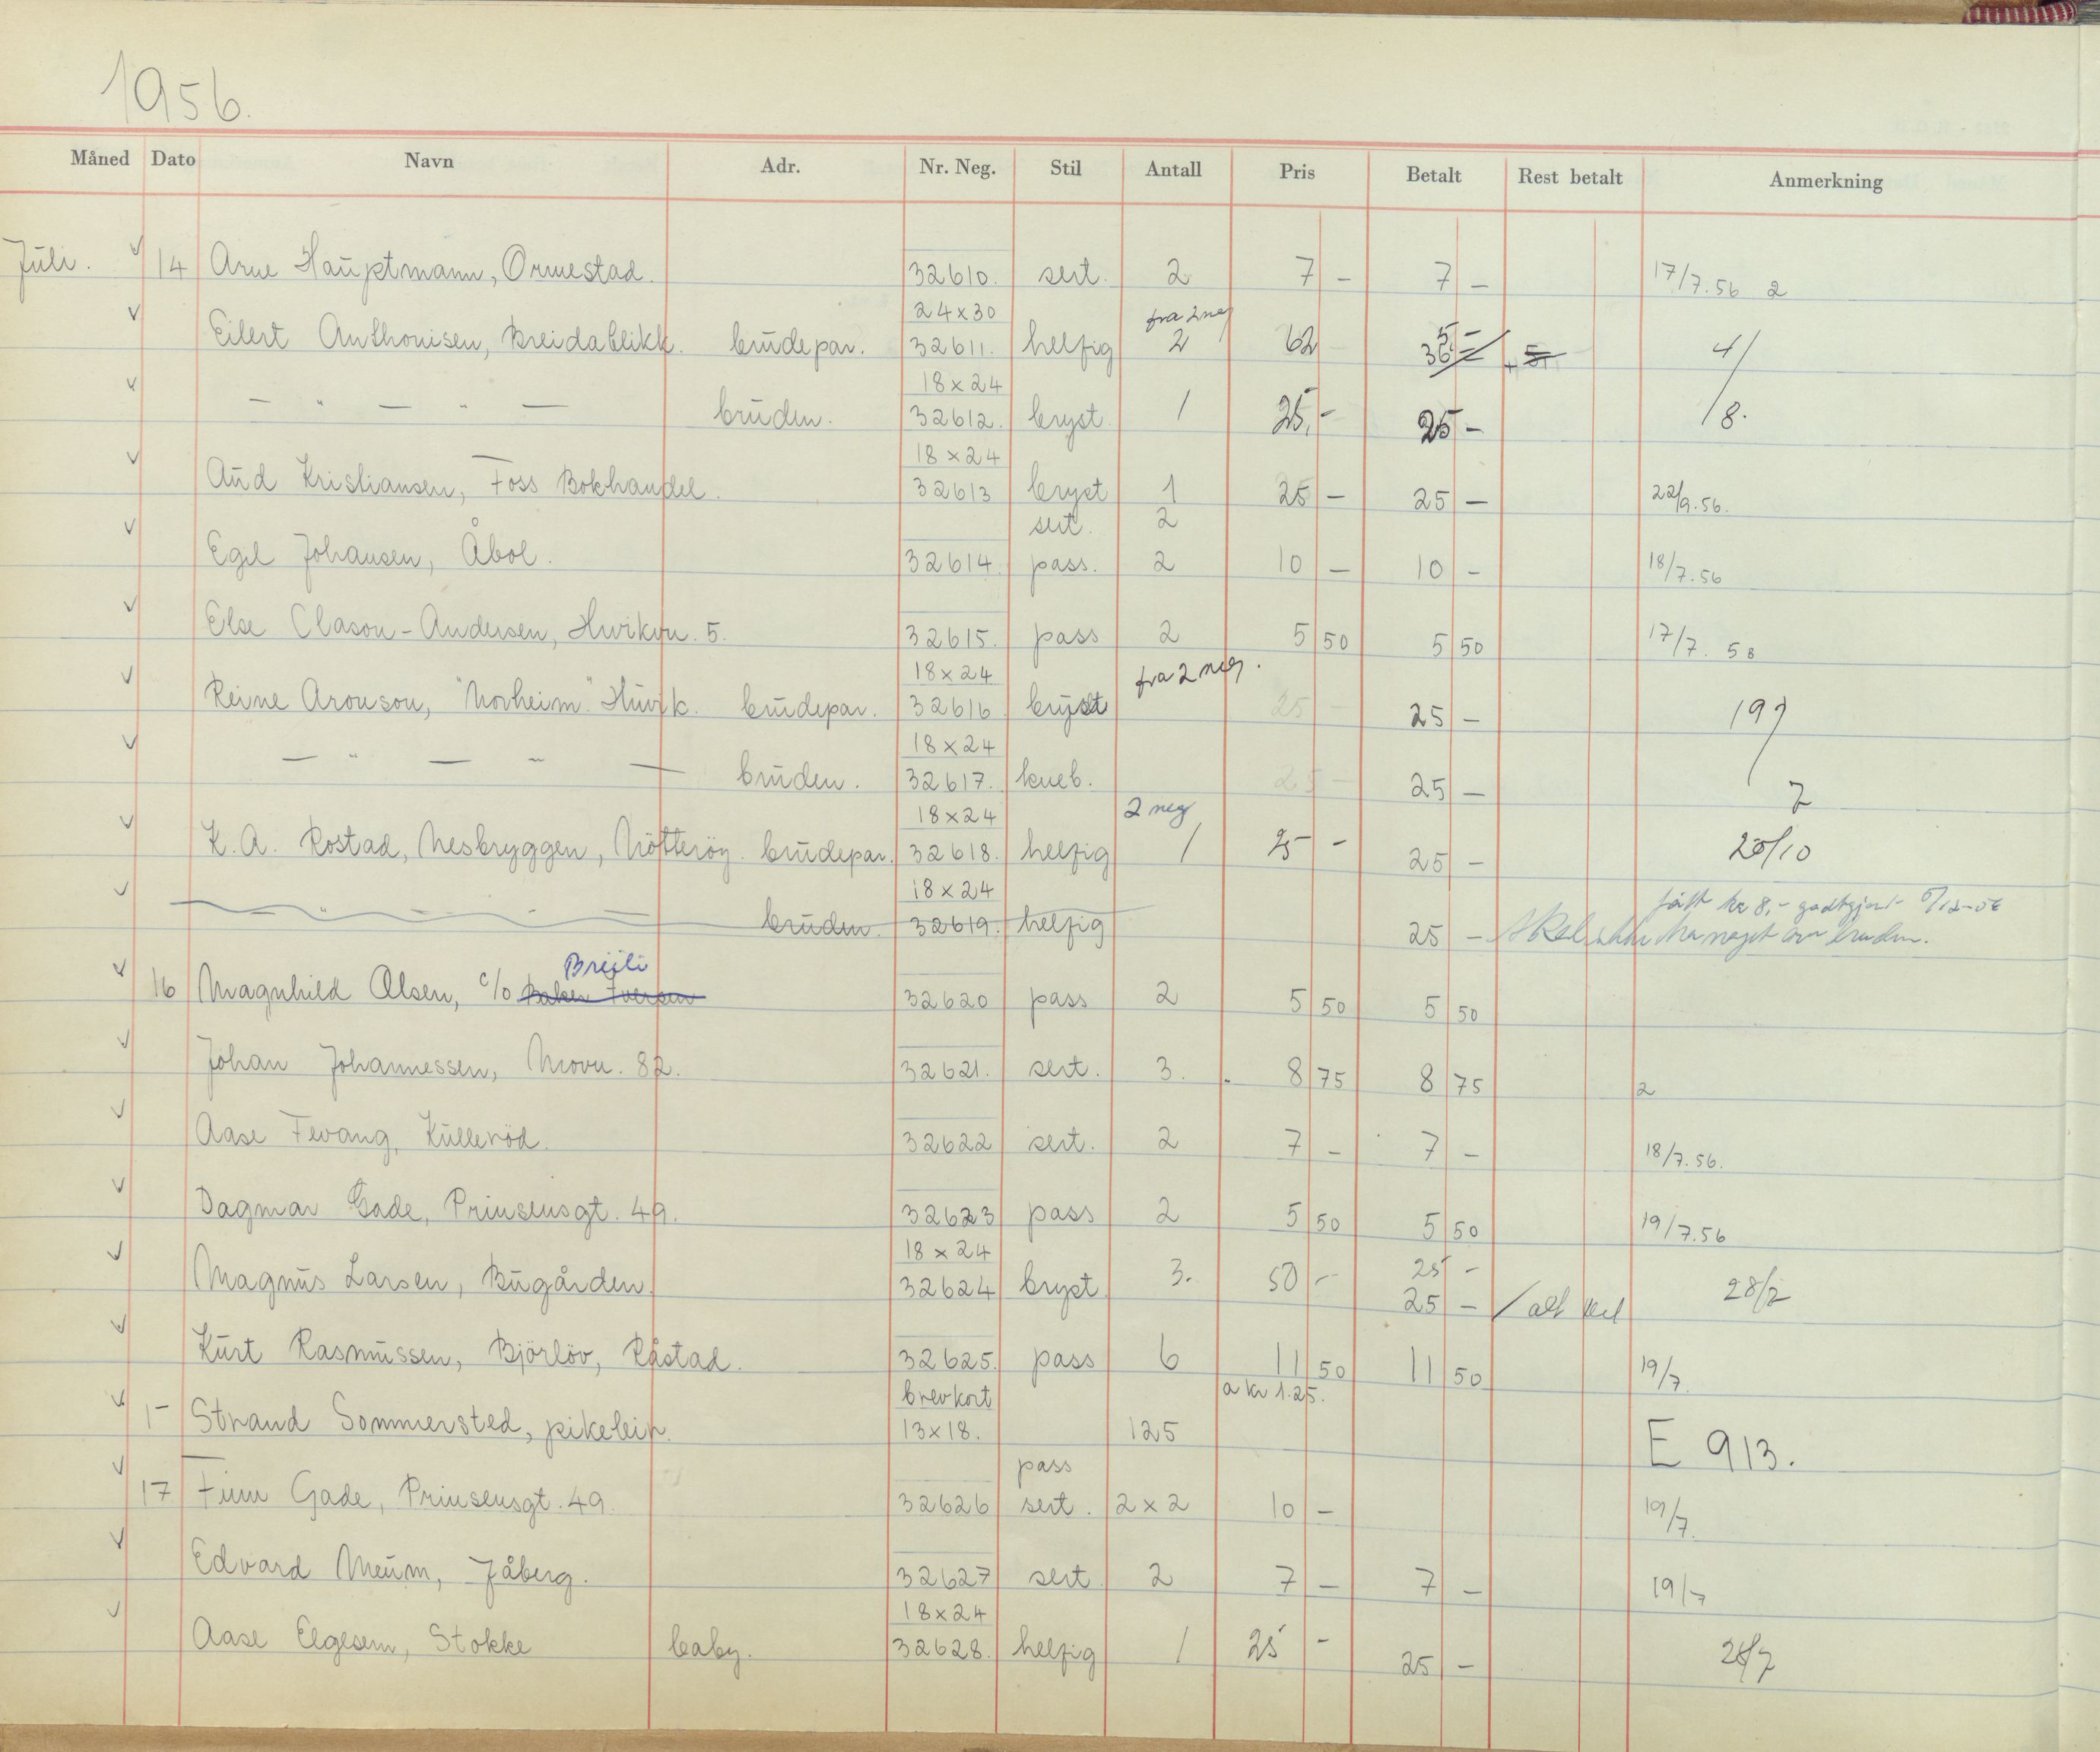 1956.
Måned Dato Navn Adr. Nr. Neg. Stil Antall Pris Betalt Rest betalt Anmerkning
Juli. 14 Arne Hauptmann, Ormestad. 32610. sert. 2 7 – 7 – 17/7.56 2
24x30 fra 2 neg 5 –
Eilert Anthonisen, Breidablikk. brudepar. 32611. helfig 2 62 36 – 4/
18x24
– " – " – bruden. 32612. bryst 1 25,- 25 – /8.
18x24
Aud Kristiansen, Foss Bokhandel. 32613 bryst 1 25 – 25 – 22/9.56.
sert. 2
Egil Johansen, Åbol. 32614. pass. 2 10 – 10 – 18/7.56
Else Clason-Andersen, Hvikvn. 5. 32615. pass 2 5 50 5 50 17/7. 56
18x24 fra 2 neg.
Reine Aronson, "Norheim" Huvik. brudepar. 32616 bryst 25 – 25 – 19/
18x24
– " – " – bruden. 32617. kneb. 25 – 25 – 7
18x24 2 neg
K.A. Rostad, Nesbryggen, Nötteröy. brudepar. 32618. helfig 1 25 - 25 – 20/10
18x24 fått kr 8,- godtgjort
– " – " – bruden. 32619. helfig 25 – bruden.
Breili
16 Magnhild Olsen, c/o Baker Iversen 32620 pass 2 5 50 5 50
Johan Johannessen, Movn. 82. 32621. sert. 3. 8 75 8 75 2
Aase Fevang, Kulleröd. 32622 sert. 2 7 – 7 – 18/7.56.
Dagmar Gade, Prinsensgt. 49. 32623 pass 2 5 50 5 50 19/7.56
18x24 25 –
Magnus Larsen, Bugården. 32624 bryst 3. 50 – 25 – / alt bet 28/7
Kurt Rasmussen, Björlöv, Råstad. 32625. pass 6 11 50 11 50 19/7.
brevkort a kr 1.25.
1- Strand Sommersted, pikeleir. 13x18. 125 E 913.
pass
17 Finn Gade, Prinsensgt. 49. 32626 sert. 2x2 10 – 19/7.
Edvard Meum, Jåberg. 32627 sert. 2 7 – 7 – 19/7
18x24
Aase Elgesem, Stokke baby. 32628. helfig 1 25 - 25 – 28/7